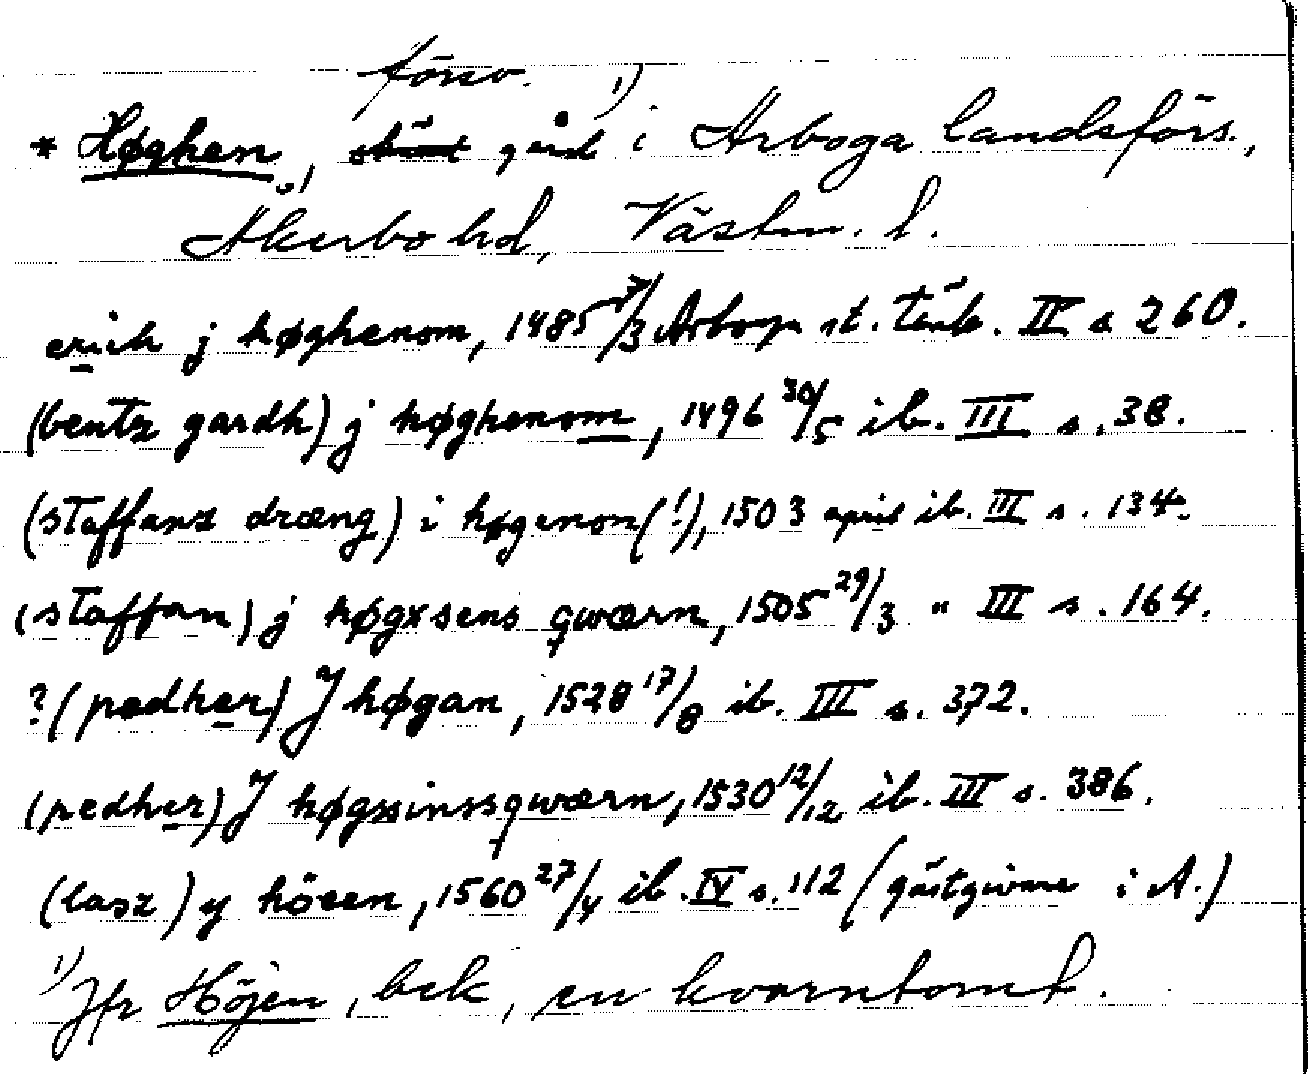 försv. 1)
* Høghen, gård i Arboga landsförs.,
Åkerbo hd, Västm. l.
erich j høghenom, 1485 7/3 Arboga st. tänk. II s 260.
(bentz gardh) j høghenom, 1496 30/5 ib. III s. 38.
(staffans dræng) i høgenon(!), 1503 april ib. III s. 134.
(staffan) j høgxsens qwærn, 1505 29/3 " III s. 164.
? (pedher) J høgan, 1528 17/8 ib. III s. 372.
(pedher) J høgxsinssqwærn, 1530 12/12 ib. III s. 386.
(lasz) y höeen, 1560 27/4 ib. IV s. 112 (gästgivare i A.)
1) Jfr Höjen, bek, en kvarntomt.